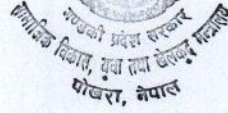 गण्डकी प्रदेश सरकार
सामाजिक विकास, युवा तथा खेलकुद मन्त्रालय
पोखरा, नेपाल